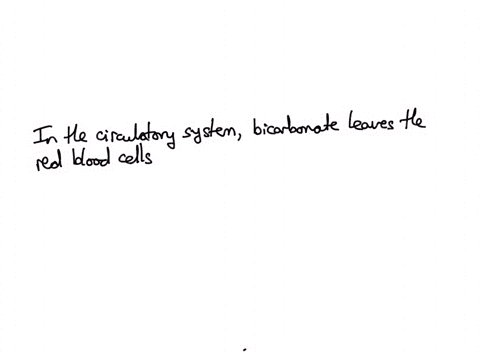 In the circulatory system, bicarbonate leaves the
red blood cells